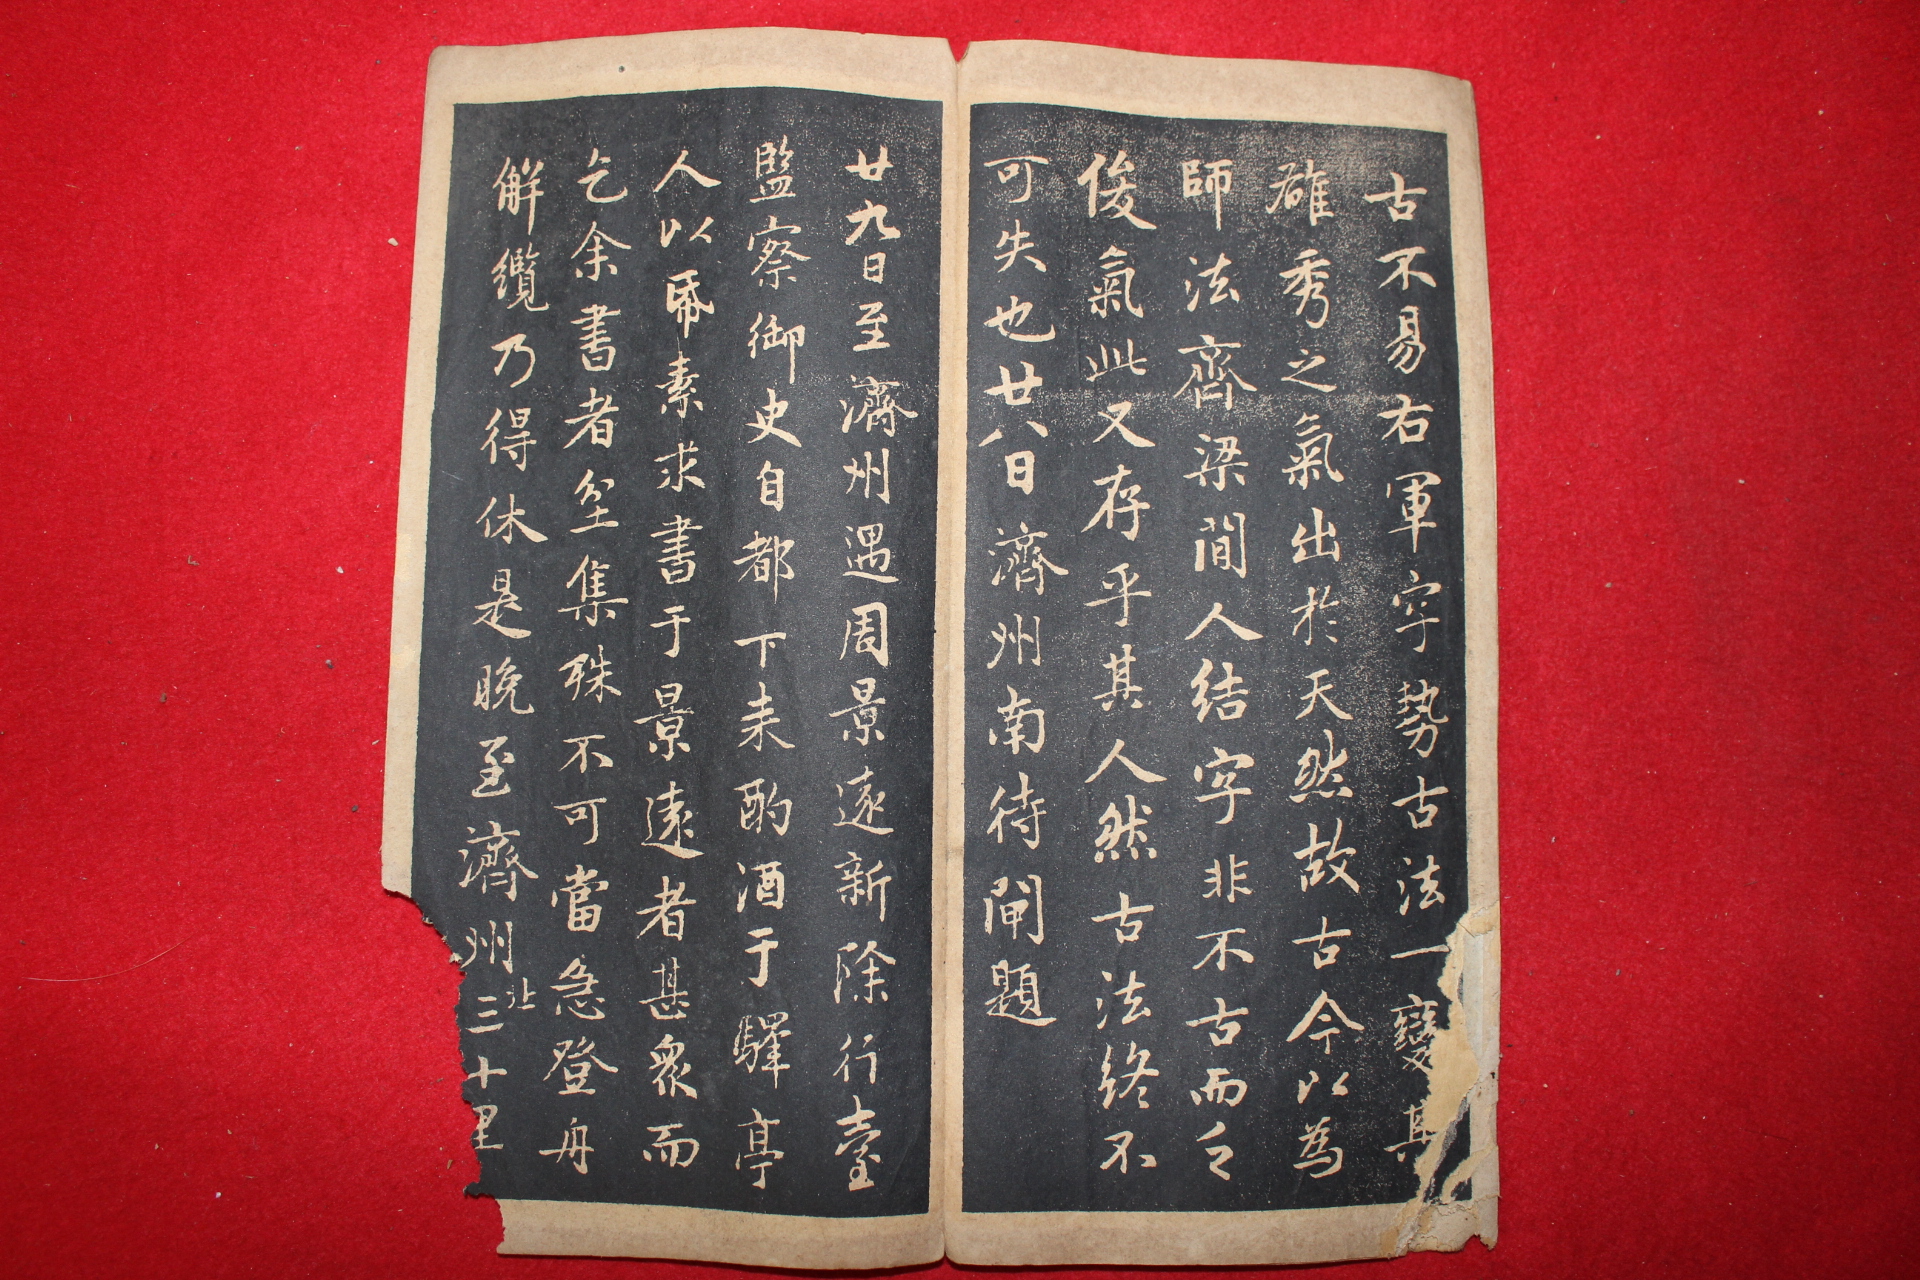 古不易右軍字勢古法一變其
雄秀之氣出於天然故古今以為
師法齊梁間人結字非不古而乏
俊氣此又存乎其人然古法終不
可失也廿八日濟州南待閘題
廿九日至濟州遇周景遠新除行臺
監察御史自都下来酌酒于驛亭
人以帋素求書于景遠者甚衆而
乞余書者坌集殊不可當急登舟
解纜乃得休是晚至濟州北三十里